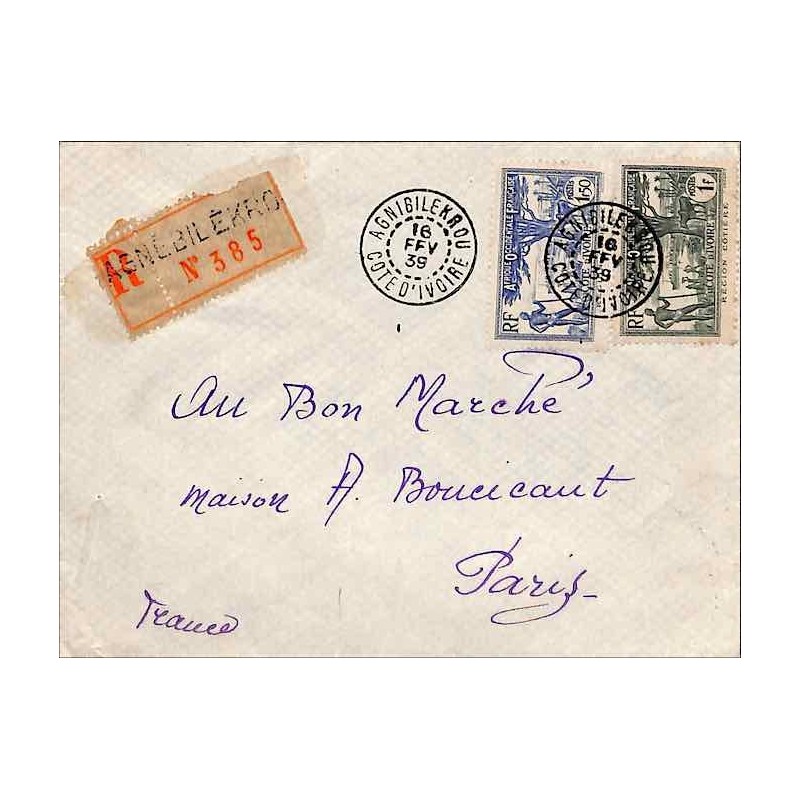 R AGNEBILÉKRO
Nº 385
AGNIBILEKROU
16
FEV
39
COTE D'IVOIRE
AFRIQUE OCCIDENTALE FRANÇAISE
POSTES
1F50
RF
CÔTE D'IVOIRE
POSTES
1F
RF
CÔTE D'IVOIRE
RÉGION CÔTIÈRE
AGNIBILEKROU
16
FEV
39
COTE D'IVOIRE
Au Bon Marché
maison A. Boucicaut
Paris_
France